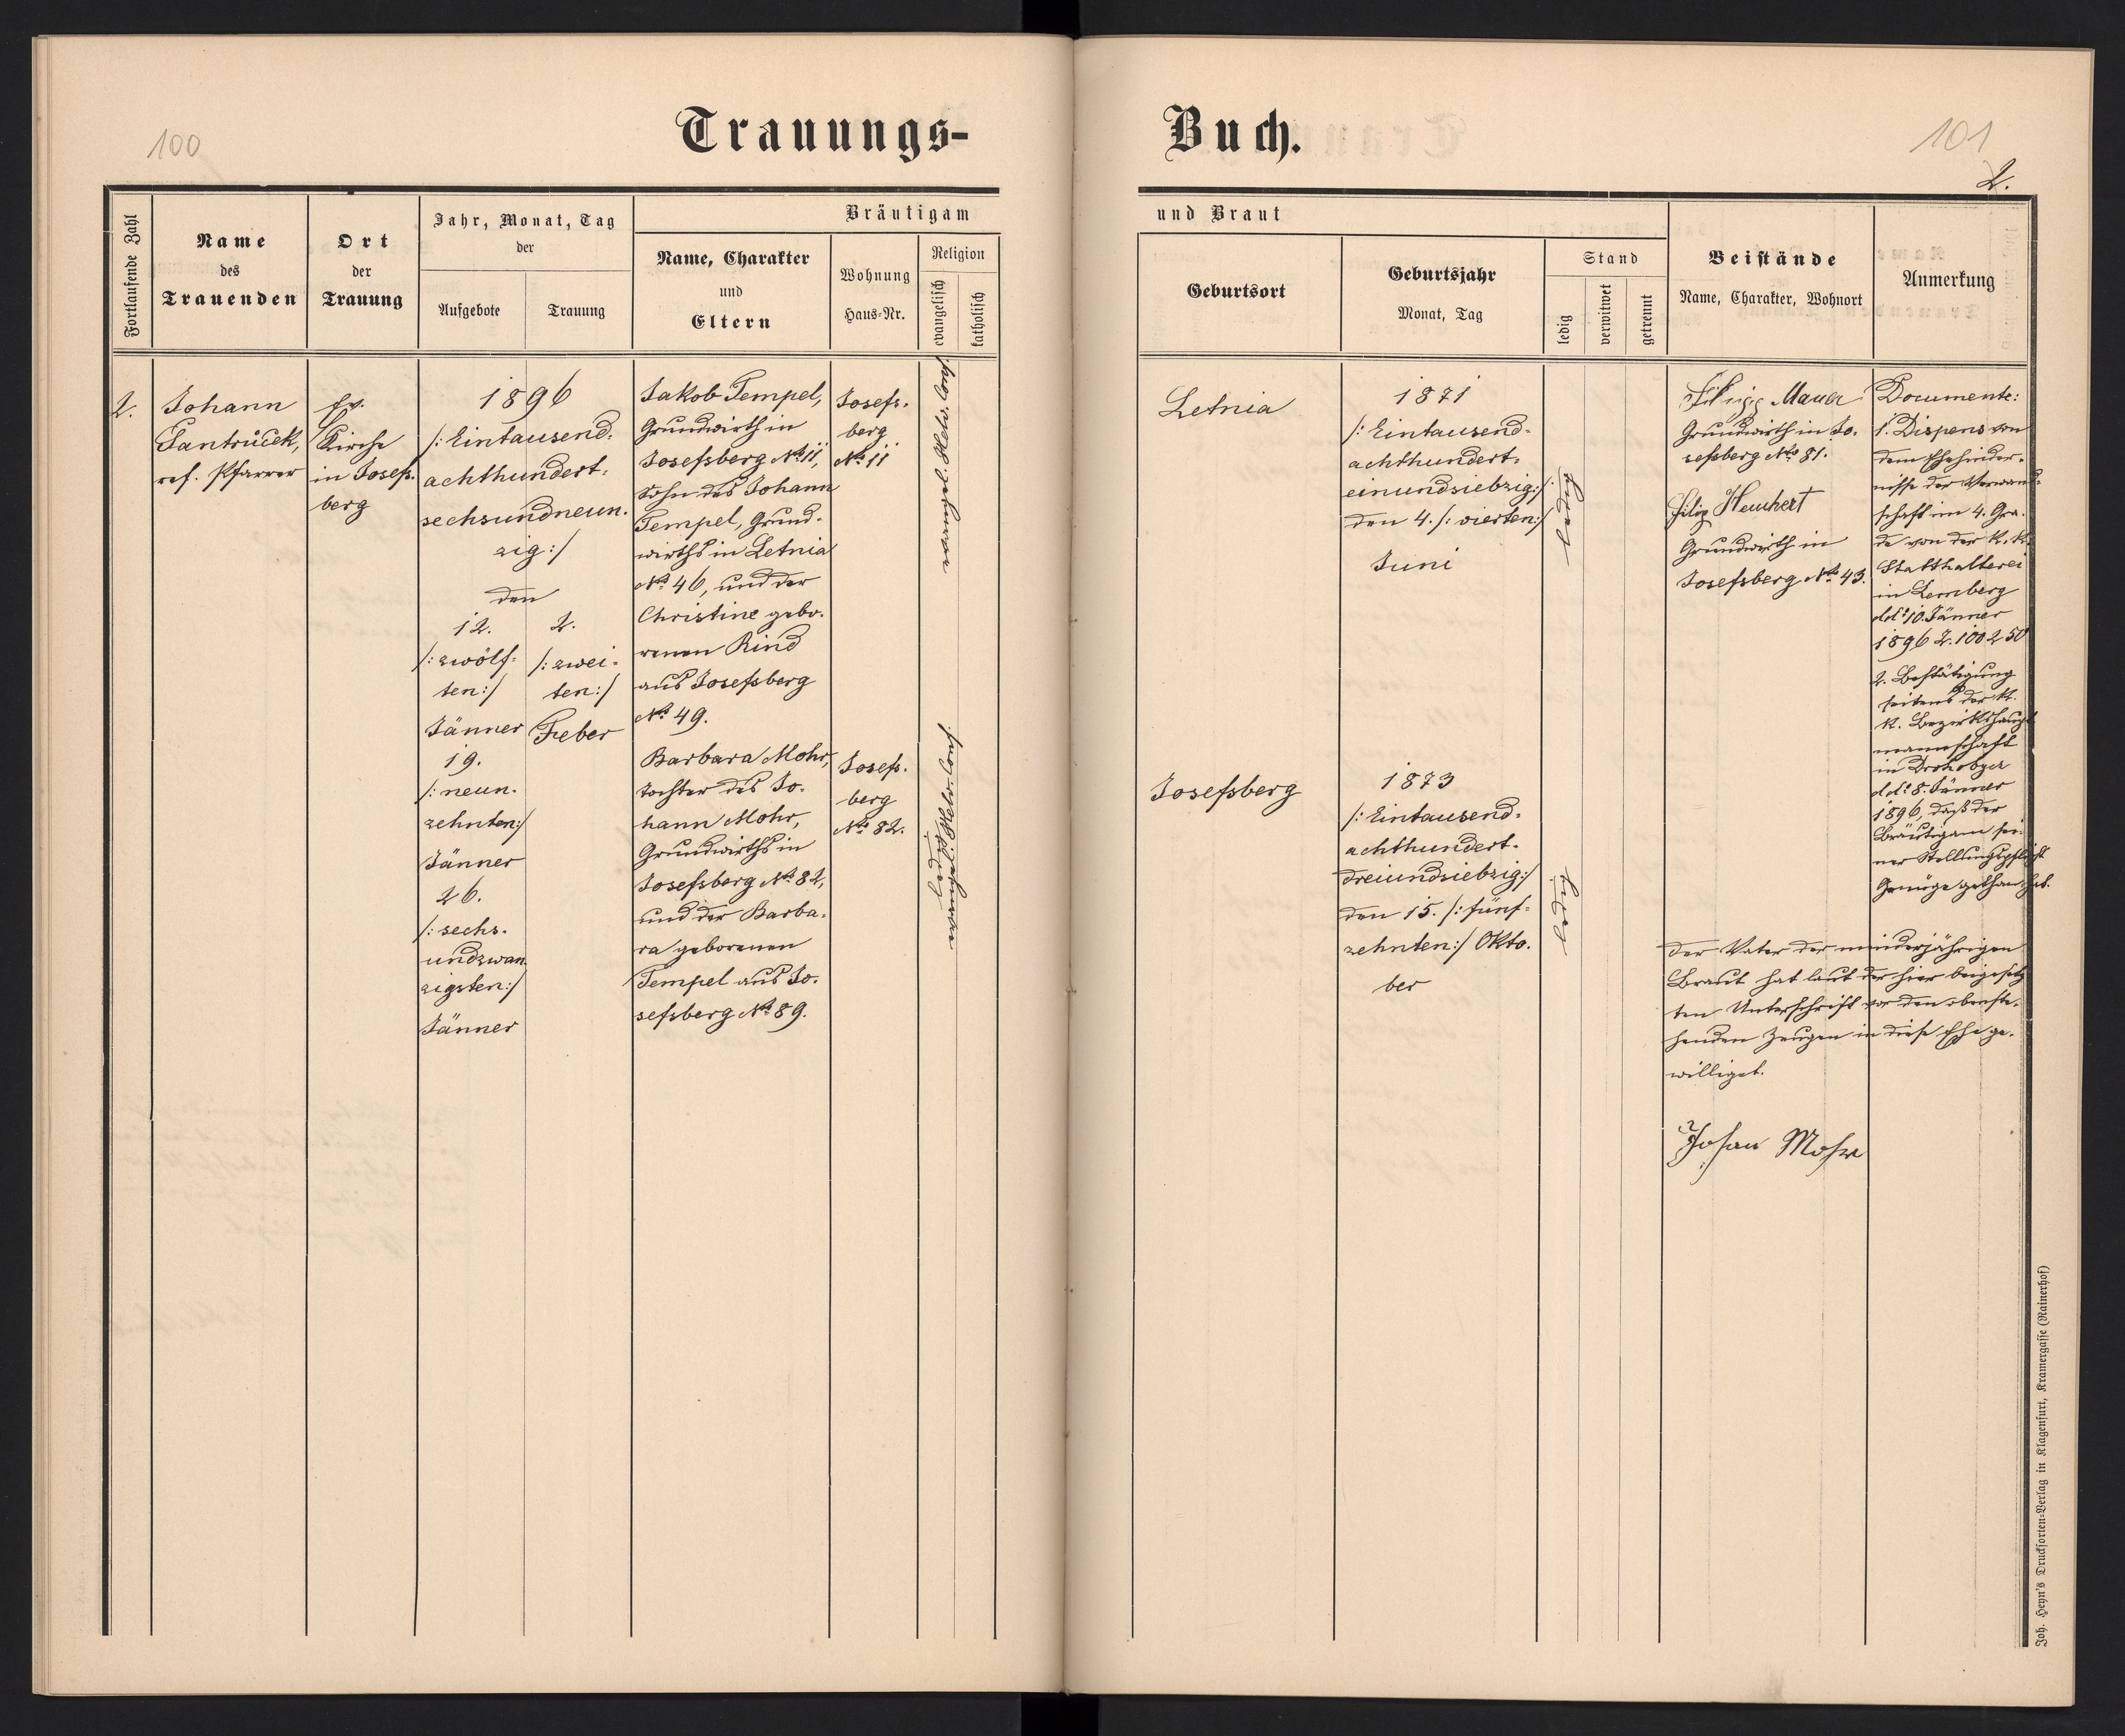 100
Trauungs-
Fortlaufende Zahl
Name
des
Trauenden
Ort
der
Trauung
Jahr, Monat, Tag
der
Aufgebote
Trauung
Bräutigam
Name, Charakter
und
Eltern
Wohnung
Haus-Nr.
Religion
evangelisch
katholisch
2.
Johann
Pantrůček,
ref. Pfarrer
Ev.
Kirche
in Josefs-
berg
1896
/: Eintausend-
achthundert-
sechsundneun-
zig :/
den
12.
/: zwölf-
ten :/
Jänner
19.
/: neun-
zehnten :/
Jänner
26.
/: sechs-
undzwan-
zigsten :/
Jänner
2.
/: zwei-
ten :/
Feber
Jakob Tempel,
Grundwirth in
Josefsberg No 11,
Sohn des Johann
Tempel, Grund-
wirths in Letnia
No 46, und der
Christine gebo-
renen Rind
aus Josefsberg
No 49.
Josefs-
berg
No 11
evangel. Helv. Conf.
Barbara Mohr,
Tochter des Jo-
hann Mohr,
Grundwirths in
Josefsberg No 82,
und der Barba-
ra geborenen
Tempel aus Jo-
sefsberg No 89.
Josefs-
berg
No 82.
evangel. Helv. Conf.
ledig
Buch.
101
2.
und Braut
Geburtsort
Geburtsjahr
Monat, Tag
Stand
ledig
verwitwet
getrennt
Beistände
Name, Charakter, Wohnort
Anmerkung
Letnia
1871
/: Eintausend-
achthundert-
einundsiebzig :/
den 4. /: vierten :/
Juni
ledig
Josefsberg
1873
/: Eintausend-
achthundert-
dreiundsiebzig :/
den 15. /: fünf-
zehnten :/ Okto-
ber
ledig
Filipp Mauer
Grundwirth in Jo-
sefsberg No 81.
Filip Heuchert
Grundwirth in
Josefsberg No 43.
Documente:
1. Dispens von
dem Ehehinder-
nisse der Verwand-
schaft im 4. Gra-
de von der k. k.
Statthalterei
in Lemberg
ddo 10. Jänner
1896 Z. 100250
2. Bestätigung
seitens der k.
k. Bezirkshaupt
mannschaft
in Drohobycz
ddo 8. Jänner
1896, daß der
Bräutigam sei-
ner Stellungspflicht
Genüge gethan hat.
Der Vater der minderjährigen
Braut hat laut der hier beigesetz-
ten Unterschrift vor den obenste-
henden Zeugen in diese Ehe ge-
williget.
Johan Mohr
Joh. Heyn's Drucksorten-Verlag in Klagenfurt, Kramergasse (Rainerhof)